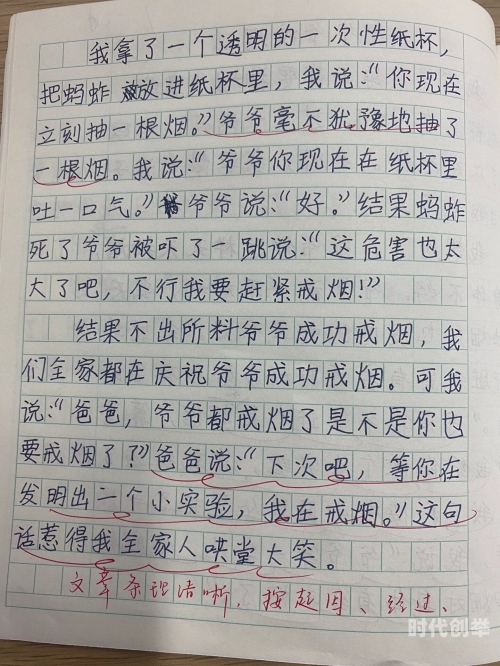 我拿了一个透明的一次性纸杯，
把蚂蚱放进纸杯里，我说：“你现在
立刻抽一根烟。”爷爷毫不犹豫地抽了
一根烟。我说：“爷爷你现在在纸杯里
吐一口气。”爷爷说：“好。”结果蚂蚱
死了爷爷被吓了一跳说：“这危害也太
大了吧，不行我要赶紧戒烟！”
结果不出所料爷爷成功戒烟，我
们全家都在庆祝爷爷成功戒烟。可我
说：“爸爸，爷爷都戒烟了是不是你也
要戒烟了？”爸爸说：“下次吧，等你在
发明出二个小实验，我在戒烟。”这句
话惹得我全家人哄堂大笑。
文章条理清晰，按起因、经过、
时代创举